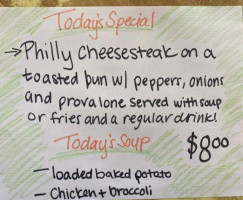 Today's Special
→Philly Cheesesteak on a
toasted bun w/ peppers, onions
and provalone served with soup
or fries and a regular drink!
Today's Soup
$8.00
- loaded baked potato
- Chicken + broccoli